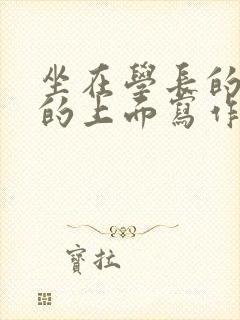 坐在學長的
的上而寫作
寶拉